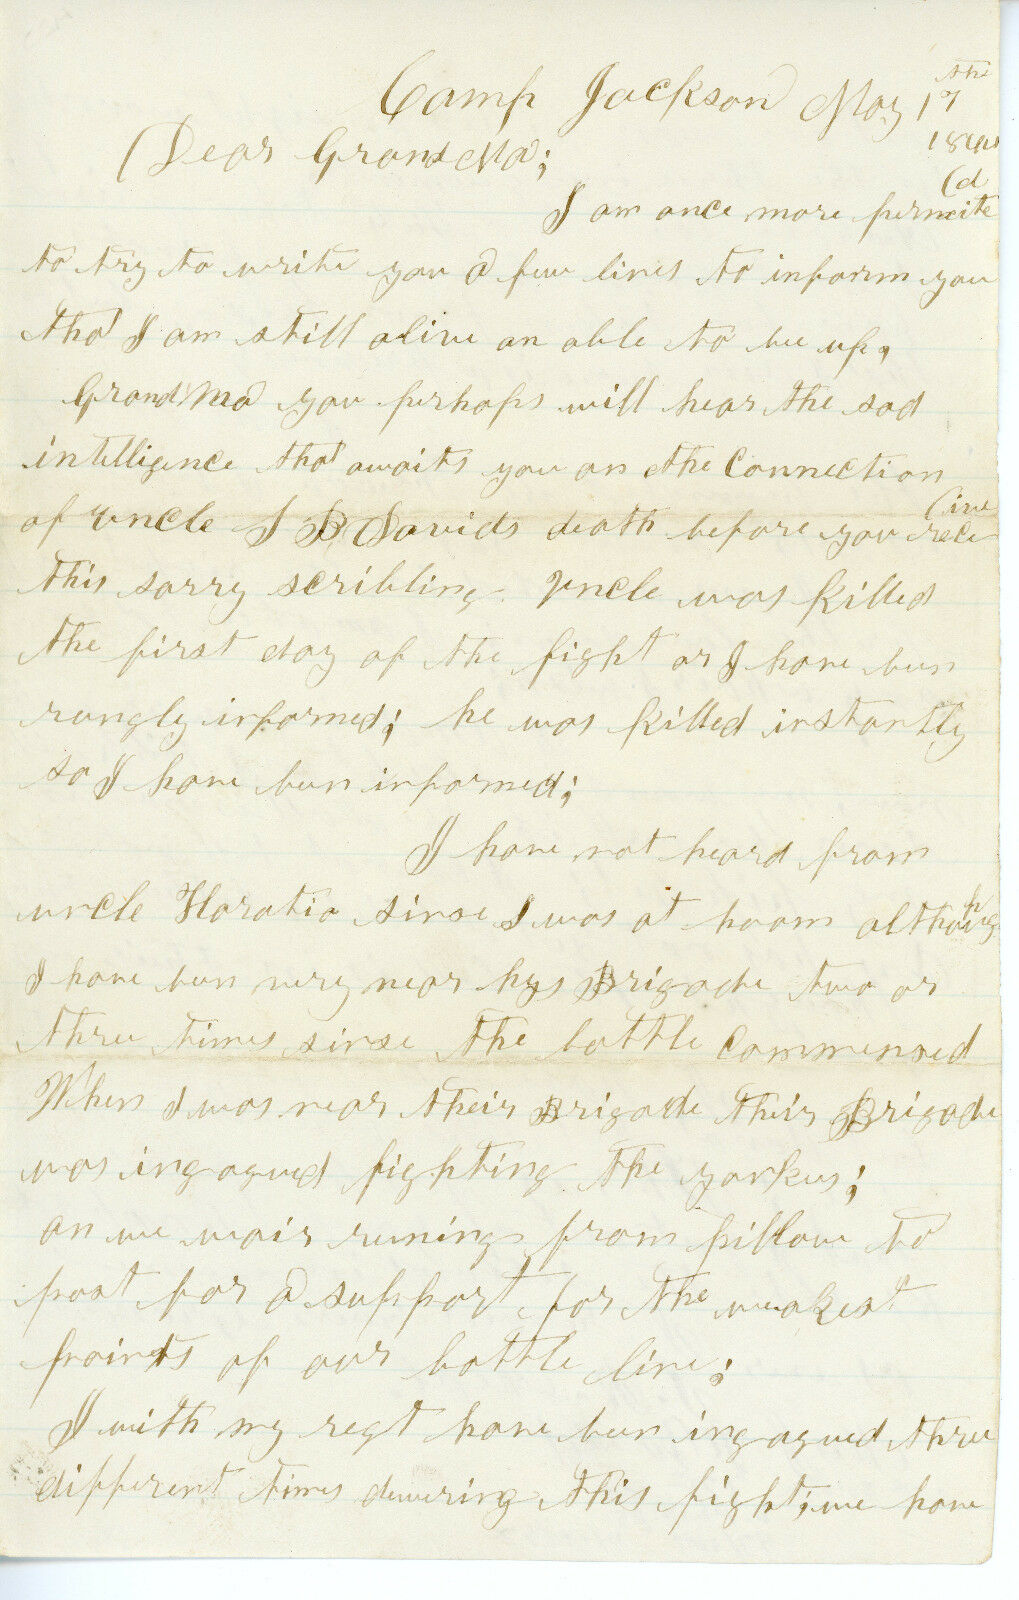 Camp Jackson May 17th
186
Dear Grand Ma;
I am once more permcite(d
to try to write you a few lines to inform you
that I am still alive an able to bee up,
Grand Ma you perhaps will hear the sad
intelligence that awaits you on the Connection
of Uncle J B Davids death before you rece(ive
this sorry scribling. Uncle was killed
the first day of the fight or I have bun
rongly informed; he was killed instantly
so I have bun informed;
I have not heard from
uncle Horatio sinse I was at hoom although
I have bun very near hys Brigade two or
three times sinse the battle commensed
When I was near their Brigade their Brigade
was ingagued fighting the yankees;
an we wair runing from pillow to
post for a support for the weakest
points of our battle line;
I with my regt have bun ingagued three
different times dewering this fight; we have